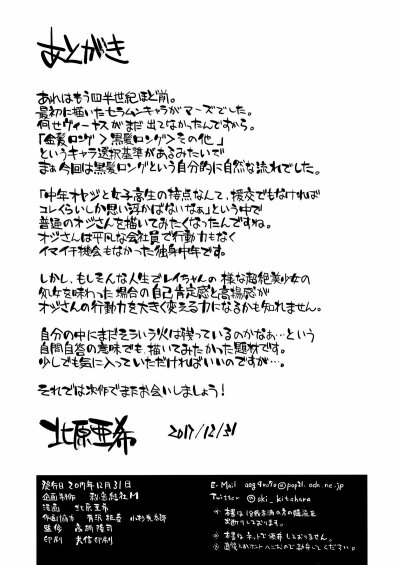 あとがき
あれはもう四半世紀ほど前。
最初に描いたセラムンキャラがマーズでした。
何せヴィーナスがまだ出てなかったんですから。
「金髪ロング>黒髪ロング>その他」
というキャラ選択基準があるみたいで
まぁ今回は黒髪ロングという自分的に自然な流れでした。
「中年オヤジと女子高生の接点なんて、援交でもなければ
コレくらいしか思い浮かばないなぁ」という中で
普通のオジさんを描いてみたくなったんですね。
オジさんは平凡な会社員で行動力もなく
イマイチ機会もなかった独身中年です。
しかし、もしそんな人生でレイちゃんの様な超絶美少女の
処女を味わった場合の自己肯定感と高揚感が
オジさんの行動力を大きく変える力になるかも知れません。
自分の中にまだそういう火は残っているのかなぁ…という
自問自答の意味でも、描いてみたかった題材です。
少しでも気に入っていただければいいのですが…。
それでは次作でまたお会いしましょう!
北原亜希 2017/12/31
発行日 2017年12月31日
企画制作 秘密結社M
漫画 北原亜希
作画協力
監修 高橋
印刷
E-Mail
Twitter @aki_kitahara
※ 本書は18歳未満の方の購読を
お断りしております。